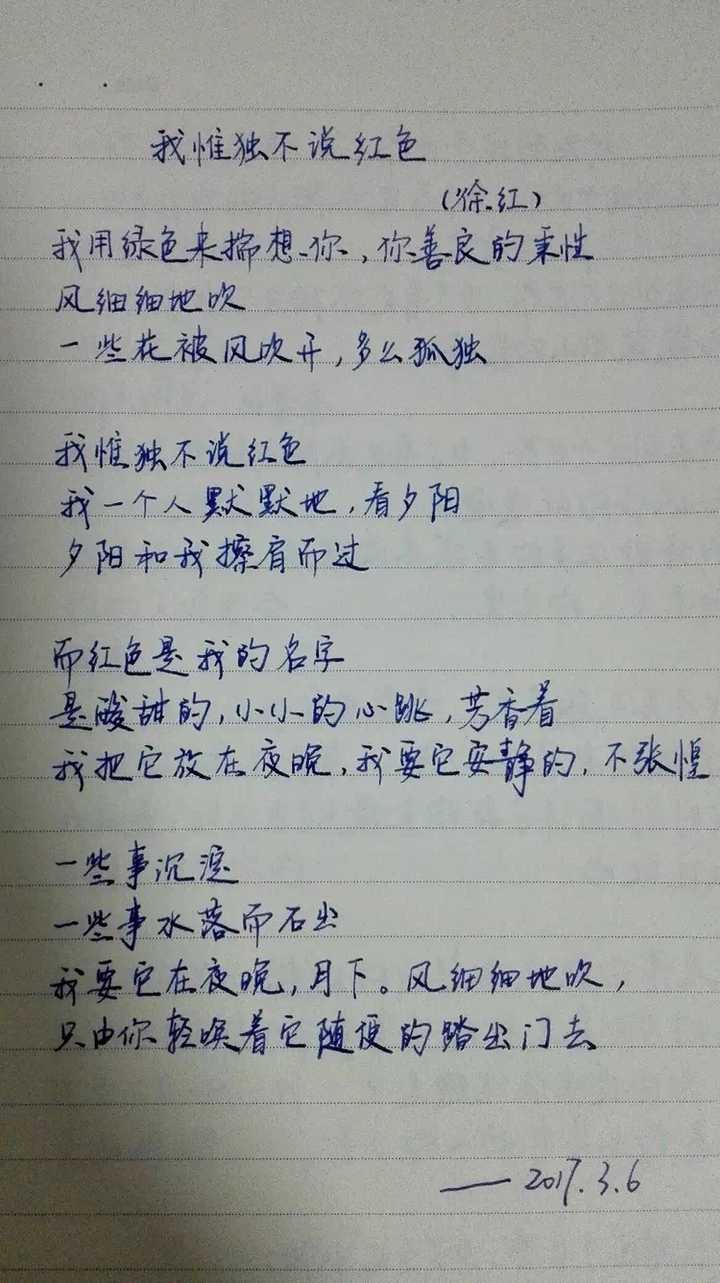 我惟独不说红色
(徐红)
我用绿色来揣想你,你善良的秉性
风细细地吹
一些花被风吹开,多么孤独
我惟独不说红色
我一个人默默地,看夕阳
夕阳和我擦肩而过
而红色是我的名字
是酸甜的,小小的心跳,芳香着
我把它放在夜晚,我要它安静的,不张惶
一些事沉淀
一些事水落而石出
我要它在夜晚,月下。风细细地吹,
只由你轻唤着它随便的踏出门去
——2017.3.6